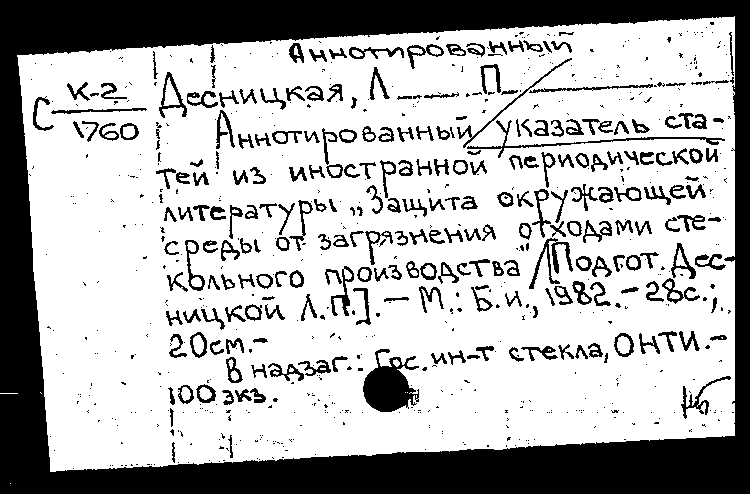 Аннотированный.
С К-2/1760
Десницкая, Л П
Аннотированный указатель ста-
тей из иностранной периодической
литературы „Защита окружающей
среды от загрязнения отходами сте-
кольного производства" / [Подгот. Дес-
ницкой Л.П.]. – М.: Б.и., 1982. – 28с.;
20см. –
В надзаг.: Гос. ин-т стекла, ОНТИ. –
100 экз.